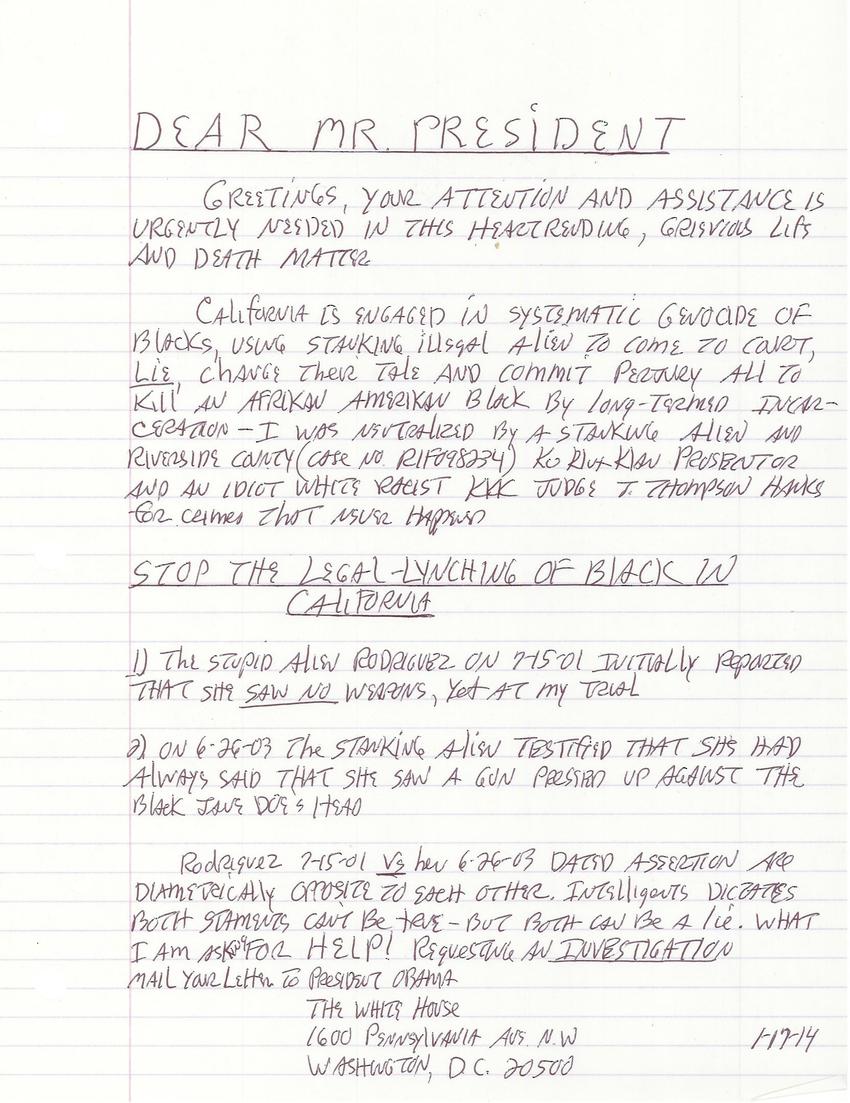 DEAR MR. PRESIDENT
GREETINGS, YOUR ATTENTION AND ASSISTANCE IS
URGENTLY NEEDED IN THIS HEARTRENDING, GRIEVIOUS LIFE
AND DEATH MATTER
CALIFORNIA IS ENGAGED IN SYSTEMATIC GENOCIDE OF
BLACKS, USING STANKING ILLEGAL ALIEN TO COME TO COURT,
LIE, CHANGE THEIR TALE AND COMMIT PERJURY ALL TO
KILL AN AFRIKAN AMERIKAN BLACK BY LONG-TERMED INCAR-
CERATION - I WAS NEUTRALIZED BY A STANKING ALIEN AND
RIVERSIDE COUNTY (CASE NO. RIF098234) KU KLUX KLAN PROSECUTOR
AND AN IDIOT WHITE RACIST KKK JUDGE T. THOMPSON HANKS
FOR CRIMES THAT NEVER HAPPENED
STOP THE LEGAL-LYNCHING OF BLACK IN
CALIFORNIA
1) THE STUPID ALIEN RODRIGUEZ ON 7-15-01 INITIALLY REPORTED
THAT SHE SAW NO WEAPONS, YET AT MY TRIAL
2) ON 6-26-03 THE STANKING ALIEN TESTIFIED THAT SHE HAD
ALWAYS SAID THAT SHE SAW A GUN PRESSED UP AGAINST THE
BLACK JANE DOE'S HEAD
RODRIGUEZ 7-15-01 VS her 6-26-03 DATED ASSERTION ARE
DIAMETRICALLY OPPOSITE TO EACH OTHER. INTELLIGENTS DICTATES
BOTH STAMENTS CAN'T BE TRUE - BUT BOTH CAN BE A LIE. WHAT
I AM ASKING FOR HELP! REQUESTING AN INVESTIGATION
MAIL YOUR LETTER TO PRESIDENT OBAMA
THE WHITE HOUSE
1600 PENNSYLVANIA AVE N.W
1-17-14
WASHINGTON, D.C. 20500